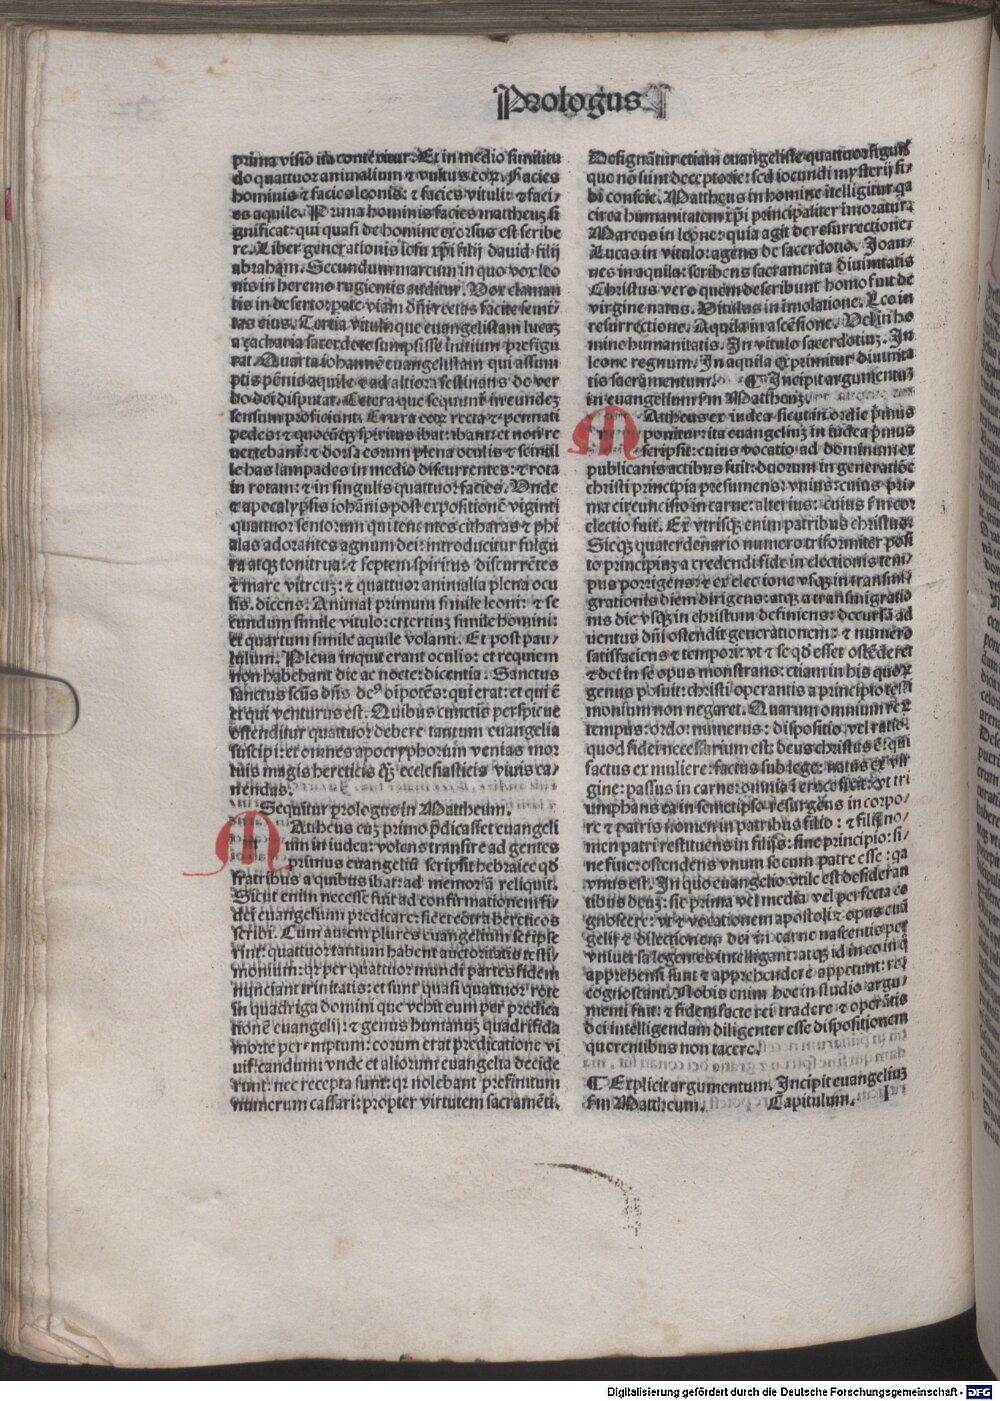 Prologus
prima visio ita contexitur. Ex in medio similitu
do quattuor animalium ⁊ vultus eoꝝ. Facies
hominis ⁊ facies leonis: ⁊ facies vituli: ⁊ faci⸗
es aquile. Prima hominis facies mattheuʒ si
gnificat: qui quasi de homine exorsus est scribe
re. Liber generationis Iesu xp̄i filij dauid filij
abraham. Secundum marcum in quo vox leo
nis in heremo rugientis auditur. Vox claman
tis in deserto: parate viam dn̄i rectas facite semi⸗
tas eius. Tertia vituli: que euangelistam lucaʒ
a zacharia sacerdote sumpsisse initium prefigu
rat. Quarta iohannē euangelistam qui assum
ptis pēnis aquile ⁊ ad altiora festinans de ver
bo dei disputat. Cetera que sequunt̄ in eundeʒ
sensum proficiunt. Crura eoꝝ recta ⁊ pennati
pedes: ⁊ quocūqʒ spiritus ibat: ibant: et non re
uertebant̄: ⁊ dorsa eorum plena oculis ⁊ scintil
le has lampades in medio discurrentes: ⁊ rota
in rotam: ⁊ in singulis quattuor facies. Unde
⁊ apocalypsis iohānis post expositionē viginti
quattuor seniorum qui tenentes citharas ⁊ phi
alas adorantes agnum dei: introducitur fulgu
ra atqʒ tonitrua: ⁊ septem spiritus discurrētes
⁊ mare vitreuʒ: ⁊ quattuor animalia plena ocu
lis. dicens. Animal primum simile leoni: ⁊ se
cundum simile vitulo: et tertiuʒ simile homini:
et quartum simile aquile volanti. Et post pau⸗
lulum. Plena inquit erant oculis: et requiem
non habebant die ac nocte: dicentia. Sanctus
sanctus scūs dn̄s deꝰ oīpotēs: qui erat: et qui ē
et qui venturus est. Quibus cunctis perspicue
ostenditur quattuor debere tantum euangelia
suscipi: et omnes apocryphorum venias mor
tuis magis hereticis qʒ ecclesiasticis viuis ca⸗
nendas.
Sequitur prologus in Mattheum.
MAttheus cuʒ primo p̄dicasset euangeli
um in iudea: volens transire ad gentes
primus euangeliū scripsit hebraice qđ
fratribus a quibus ibat: ad memoriā reliquit.
Sicut enim necesse fuit ad confirmationem fi⸗
dei euangelium predicare: sic et cōtra hereticos
scribi. Cum autem plures euangelium scripse
rint: quattuor tantum habent auctoritatis testi⸗
monium: qr per quattuor mundi partes fidem
nunciant trinitatis: et sunt quasi quattuor rote
in quadriga domini que vehit eum per predica
tionē euangelij: ⁊ genus humanuʒ quadrifida
morte peremptum: eorum erat predicatione vi
uificandum: vnde et aliorum euangelia decide
runt: nec recepta sunt: qr nolebant prefinitum
numerum cassari: propter virtutem sacramēti.
Designātur etiam euangeliste quattuor figuris
que nō sunt deceptorie: sed iocundi mysterij si⸗
bi conscie. Mattheus in homine ītelligitur qa
circa humanitatem xp̄i principaliter īmoratur
Marcus in leone: quia agit de resurrectione
Lucas in vitulo: agens de sacerdotio. Joan⸗
nes in aquila: scribens sacramenta diuinitatis
Christus vero quem describunt homo fuit de
virgine natus. Vitulus in īmolatione. Leo in
resurrectione. Aquila in ascēsione. Vel in ho
mine humanitatis. In vitulo sacerdotiuʒ. In
leone regnum. In aquila exprimitur diuinita
tis sacramentum. ¶ Incipit argumentuʒ
in euangelium s̄m Mattheuʒ.
MAttheus ex iudea sicut in ordīe p̄mus
ponitur: ita euangeliuʒ in iudea p̄mus
scripsit: cuius vocatio ad dominum ex
publicanis actibus fuit: duorum in generatiōe
christi principia presumens: vnius: cuius pri⸗
ma circuncisio in carne: alterius: cuius s̄m cor
electio fuit. Ex vtrisqʒ enim patribus christus.
Sicqʒ quaterdenario numero triformiter posi
to principiuʒ a credendi fide in electionis tem⸗
pus porrigens: ⁊ ex electione vsqʒ in transmi
grationis diem dirigens: atqʒ a transmigratio
nis die vsqʒ in christum definiens: decursā ad
uentus dn̄i ostendit generationem: ⁊ numero
satisfaciens ⁊ tempori: vt ⁊ se qđ esset ostēderet
⁊ dei in se opus monstrans: etiam in his quoꝝ
genus posuit: christi operantis a principio testi
monium non negaret. Quarum omnium reꝝ
tempus: ordo: numerus: dispositio vel ratio
quod fidei necessarium est: deus christus ē: qui
factus ex muliere: factus sub lege: natus ex vir
gine: passus in carne: omnia in cruce fixit: vt tri
umphans ea in semetipso resurgēs in corpo⸗
re ⁊ patris nomen in patribus filio: ⁊ filij no⸗
men patri restituens in filijs: sine principio: si⸗
ne fine: ostendens vnum se cum patre esse: qa
vnus est. In quo euangelio vtile est desideran
tibus deuʒ: sic prima vel media vel perfecta co
gnoscere: vt ⁊ vocationem apostoli ⁊ opus euā
gelij ⁊ dilectionem dei in carne nascentis per
vniuersa legentes intelligant: atqʒ id in eo in q̄
apprehensi sunt ⁊ apprehendere appetunt: re⸗
cognoscant. Nobis enim hoc in studio argu⸗
menti fuit: ⁊ fidem facte rei tradere ⁊ operātis
dei intelligendam diligenter esse dispositionem
querentibus non tacere.
¶ Explicit argumentum. Incipit euangeliuʒ
s̄m Mattheum. Capitulum. I
Digitalisierung gefördert durch die Deutsche Forschungsgemeinschaft - DFG